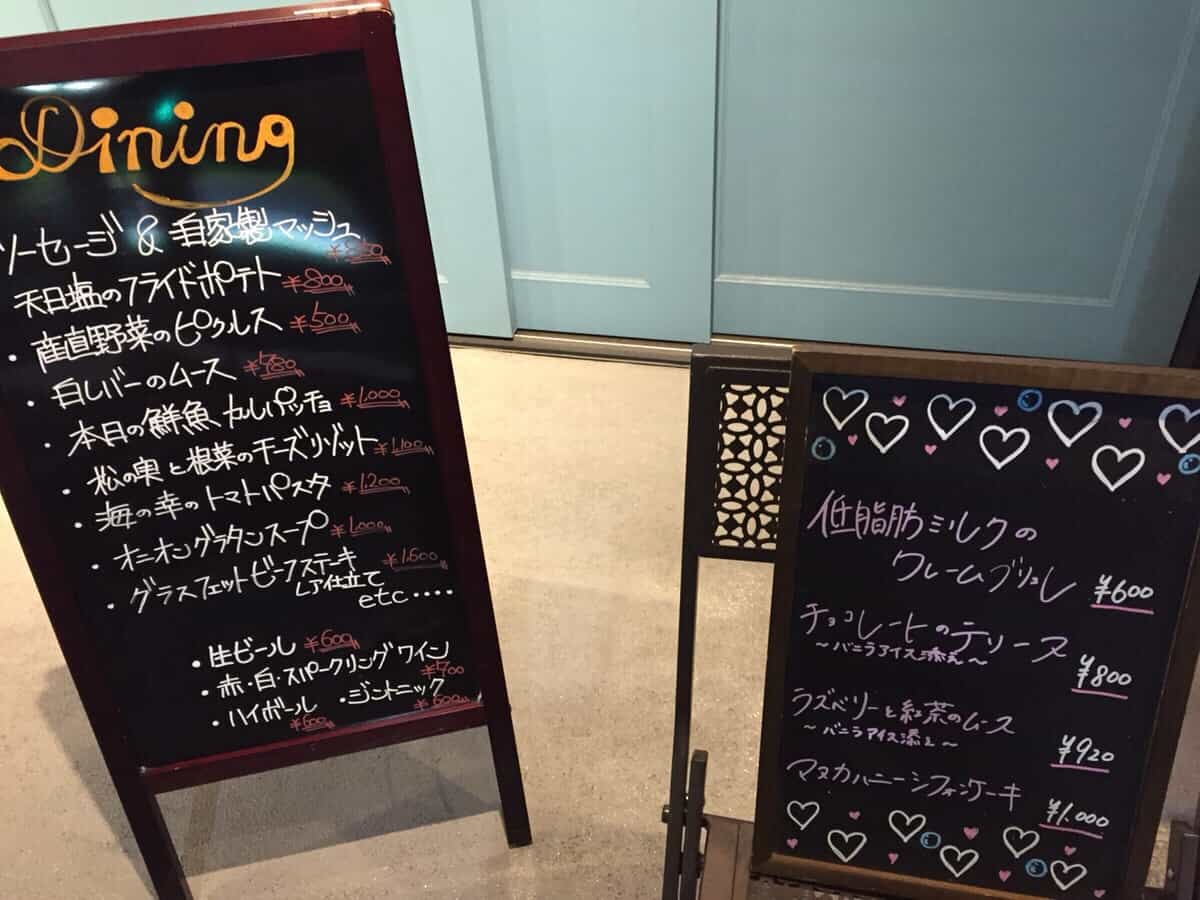 Dining
ソーセージ & 自家製マッシュ
天日塩のフライドポテト ¥800
・産直野菜のピクルス ¥500
・白レバーのムース ¥780
・本日の鮮魚、カルパッチョ ¥1,000
・松の実と根菜のチーズリゾット ¥1,100
・海の幸のトマトパスタ ¥1,200
・オニオングラタンスープ ¥1,000
・グラスフェットビーフステーキ
レア仕立て
etc‥‥
・生ビール ¥600
・赤・白・スパークリングワイン ¥700
・ハイボール ¥600 ・ジントニック ¥600
低脂肪ミルクの
クレームブリュレ ¥600
チョコレートのテリーヌ
～バニラアイス添え～ ¥800
ラズベリーと紅茶のムース
～バニラアイス添え～ ¥920
マヌカハニーシフォンケーキ
¥1,000